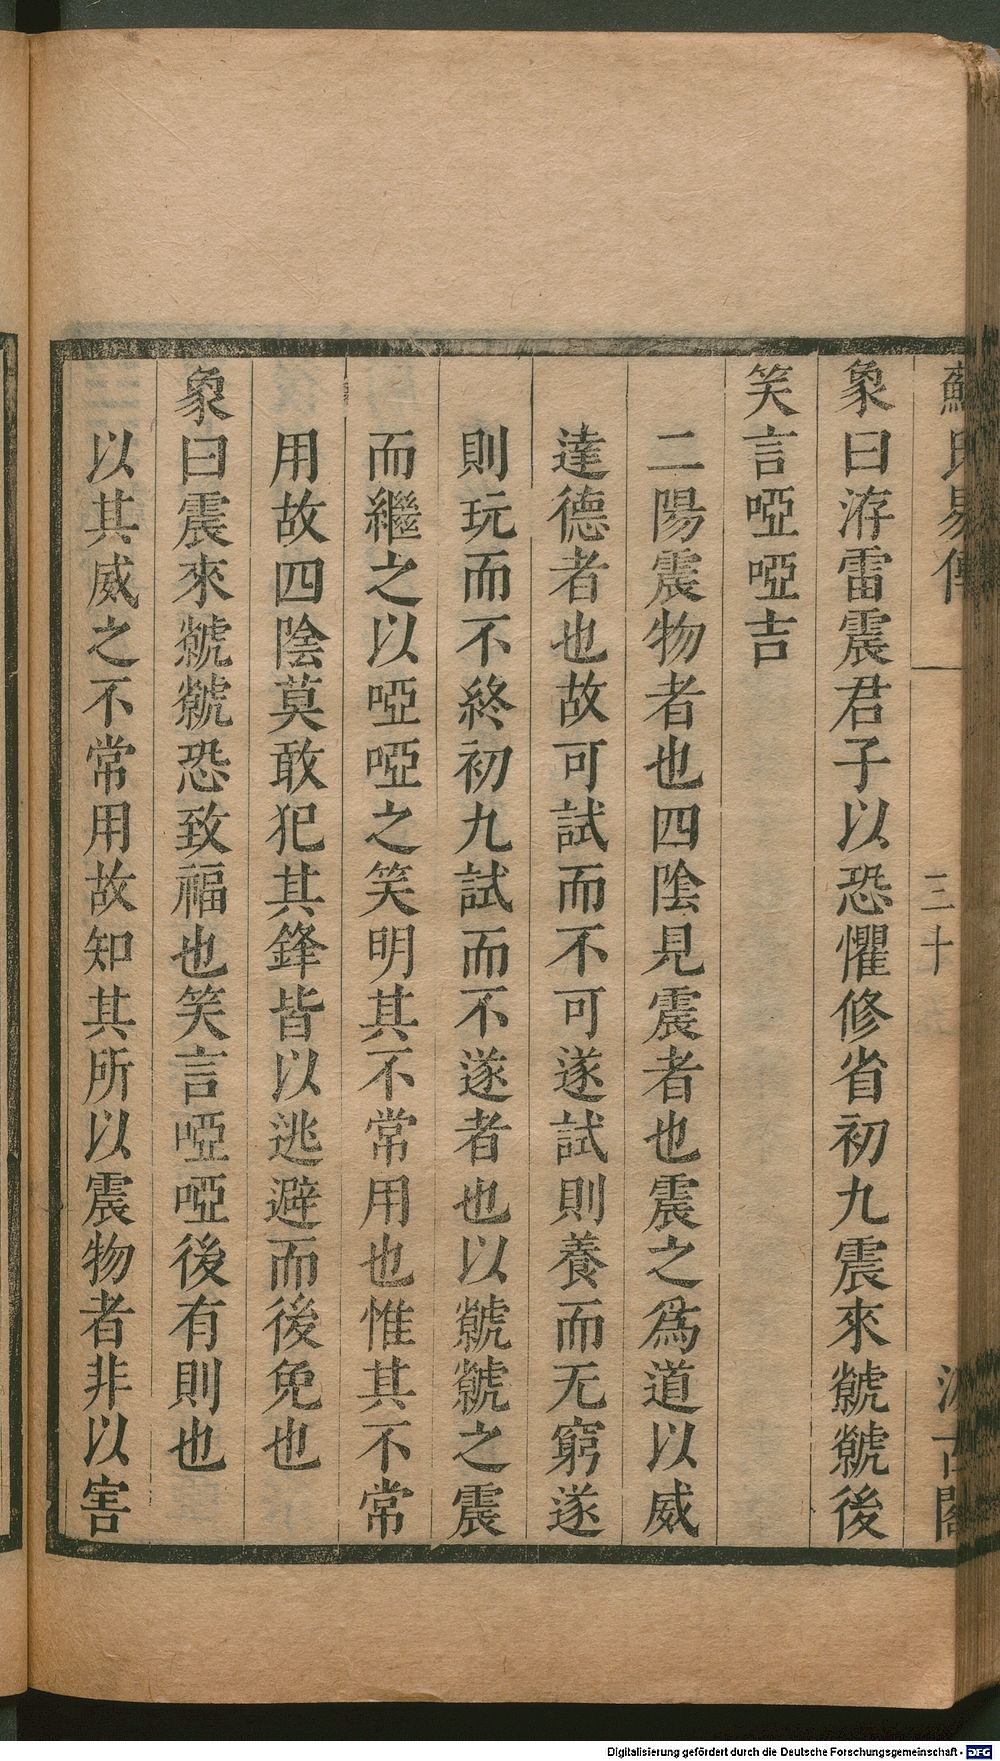 蘇氏易傳 三十 汲古閣
象曰洊雷震君子以恐懼修省初九震來虩虩後
笑言啞啞吉
二陽震物者也四陰見震者也震之爲道以威
達德者也故可試而不可遂試則養而无窮遂
則玩而不終初九試而不遂者也以虩虩之震
而繼之以啞啞之笑明其不常用也惟其不常
用故四陰莫敢犯其鋒皆以逃避而後免也
象曰震來虩虩恐致福也笑言啞啞後有則也
以其威之不常用故知其所以震物者非以害
Digitalisierung gefördert durch die Deutsche Forschungsgemeinschaft - DFG